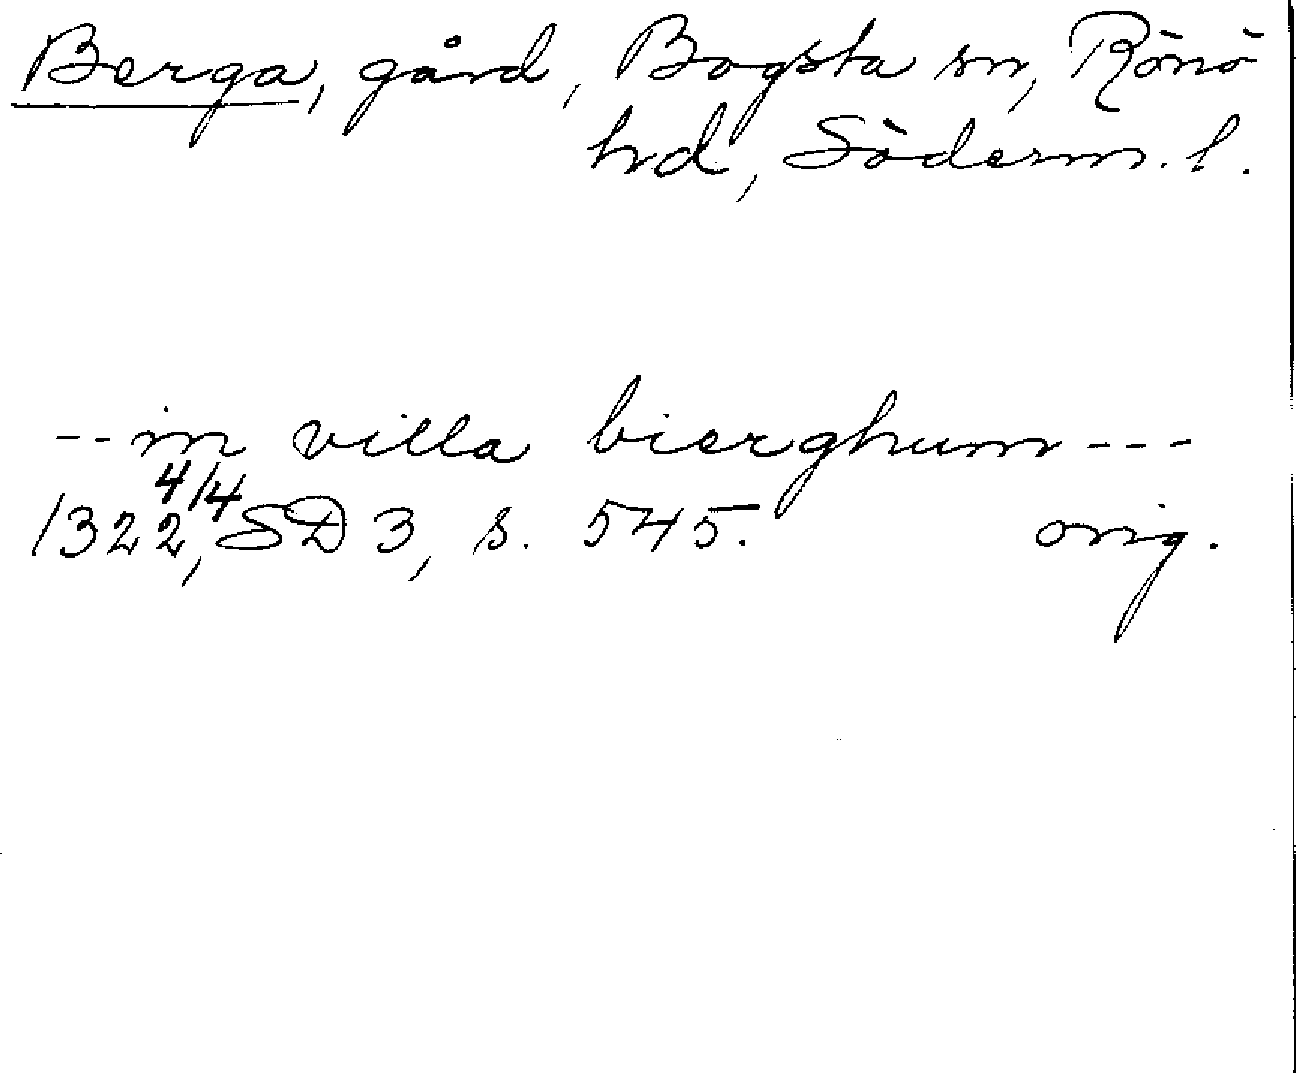 Berga, gård, Bogsta sn, Rönö
hd, Söderm. l.
-- in villa bierghum ---
4/4
1322, SD 3, s. 545. orig.